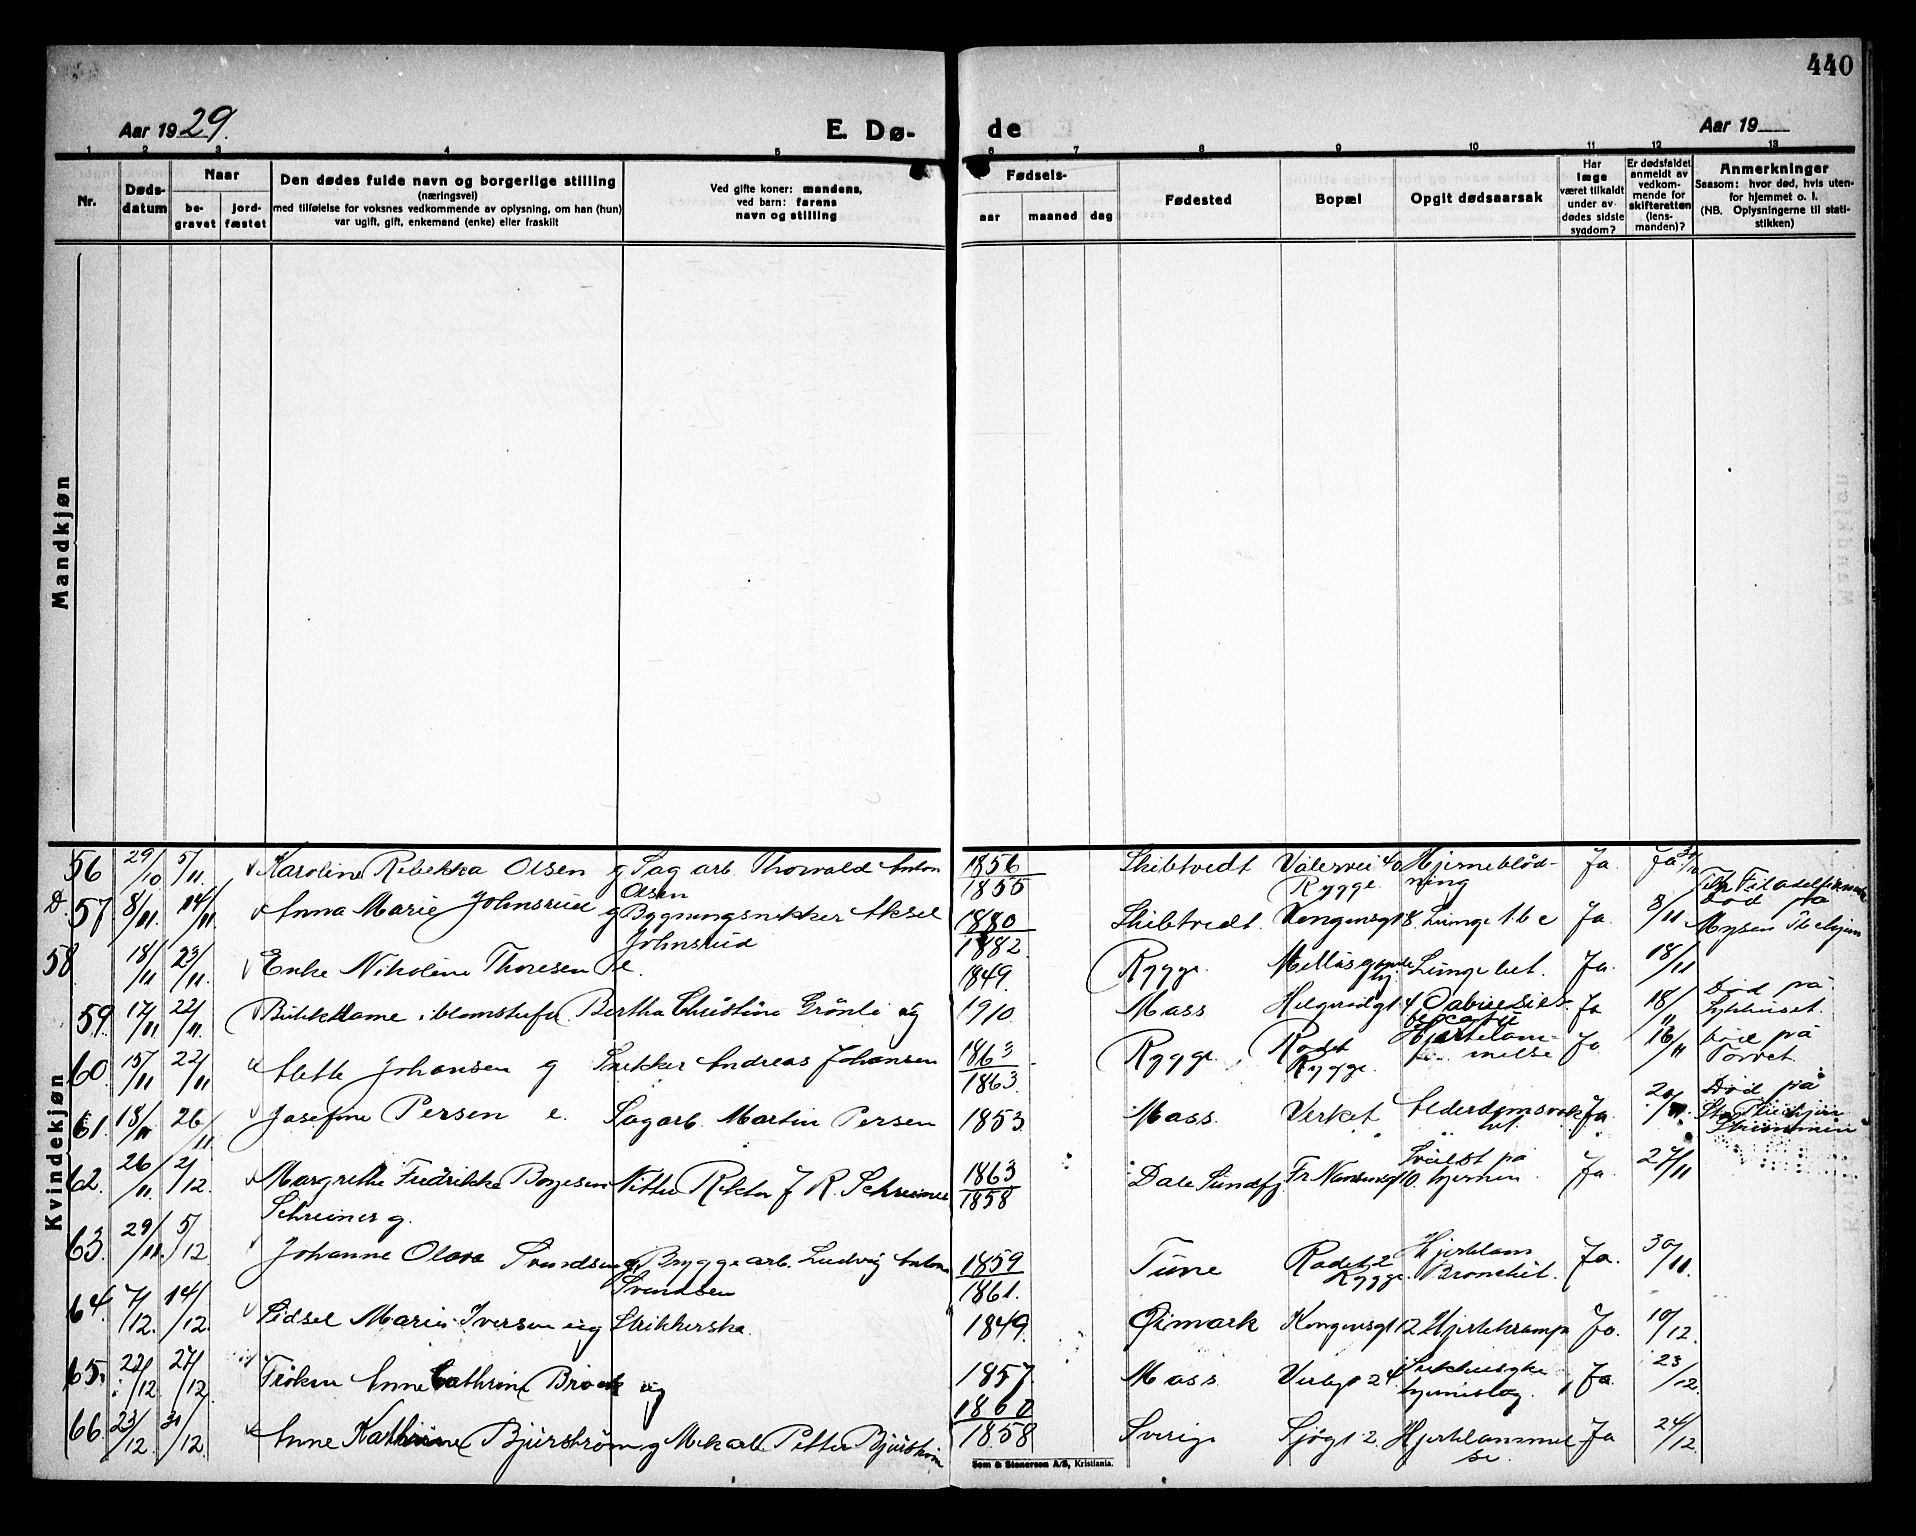 440
Aar 1929.
E. Dø-
de
Aar 19
1 2 3 4 5 6 7 8 9 10 11 12 13
Nr.
Døds-
datum
Naar
be-
gravet
jord-
fæstet
Den dødes fulde navn og borgerlige stilling
(næringsvei)
med tilføielse for voksnes vedkommende av oplysning, om han (hun)
var ugift, gift, enkemand (enke) eller fraskilt
Ved gifte koner: mandens,
ved barn: farens
navn og stilling
Fødsels-
aar
maaned
dag
Fødested
Bopæl
Opgit dødsaarsak
Har
læge
været tilkaldt
under av-
dødes sidste
sygdom?
Er dødsfaldet
anmeldt av
vedkom-
mende for
skifteretten
(lens-
manden)?
Anmerkninger
Saasom: hvor død, hvis uten-
for hjemmet o. l.
(NB. Oplysningerne til stati-
stikken)
Mandkjøn
Kvindekjøn
56 29/10 5/11 Karoline Rebekka Olsen g Sag arb. Thorvald Anton 1856 Skibtvedt Vålervei 40 Hjerneblød- Ja Ja 30/10
Olsen 1855 Rygge ning
D. 57 8/11 14/11 Anna Marie Johnsrud g Bygningsnikker Aksel 1880 Skibtvedt. Vongensgt 8 Lunge tbc Ja 8/11 Død på
Johnsrud 1882 Mysen Tbchjem
58 18/11 23/11 Enke Nikoline Thoresen e. 1849. Rygge. Lunge bet. Ja. 18/11
59 17/11 22/11 Butikkdame i blomsterf. Bertha Christine Grønli ug 1910 Moss Ja 18/11 Død på
Sykhuset.
60 15/11 22/11 Mette Johansen g Snekker Andreas Johansen 1863 Rygge Rødet Hjertelam- Ja 16/11 Død på
1863 Rygge melse Torvet
61. 18/11 26/11 Josefine Persen e. Sagarb. Martin Persen 1853 Moss Verket Alderdomsvak Ja 20/11. Død på
het
62. 26/11 2/12 Margrethe Fredrikke Borjesen Rektor J R. Schreiner 1863 Dale Sundfj Fr Nansensgt 10. Svulst på Ja 27/11
Schreiner g. 1858 hjernen
63. 29/11 5/12 Johanne Olava Svendsen g. Bryggearb. Ludvig Anton 1859 Tune Rødet 2 Hjertelam Ja. 30/11.
Svendsen 1861. Rygge. Bronchit.
64. 7/12 14/12 Sidsel Marie Iversen ug Strikkerske. 1849. Øimark Kongensgt 12 Hjertekrampe Ja. 10/12.
65. 22/12 27/12 Frøken Anne Cathrine Brock ug 1857 Moss Ja. 23/12.
66. 23/12 31/12 Anne Kathrine Bjurstrøm g Mek arb. Petter Bjurstrøm 1860 Sverige Sjøgt 2. Hjertelammel Ja 24/12.
1858 se.
Sem & Stenersen A/S, Kristiania.